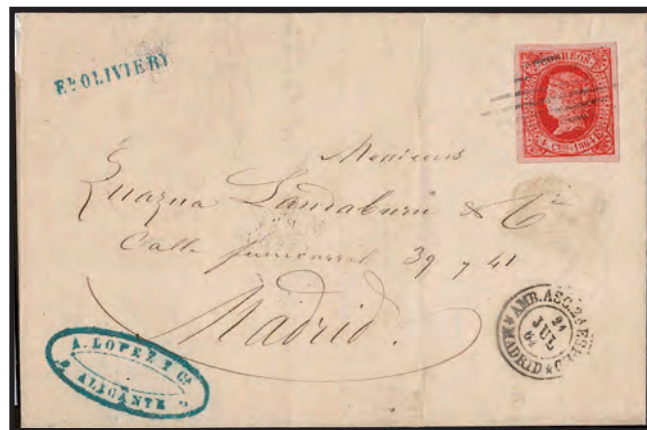 Eto OLIVIERI
CORREOS
4 CTOS 1864
Monieurs
Zuazua Landaburu & Cia
Calle fuencarral 39 y 41
Madrid.
AMB. ASC. 2A ESP.
21
JUL
64
MADRID
A. LOPEZ Y Ca
ALICANTE